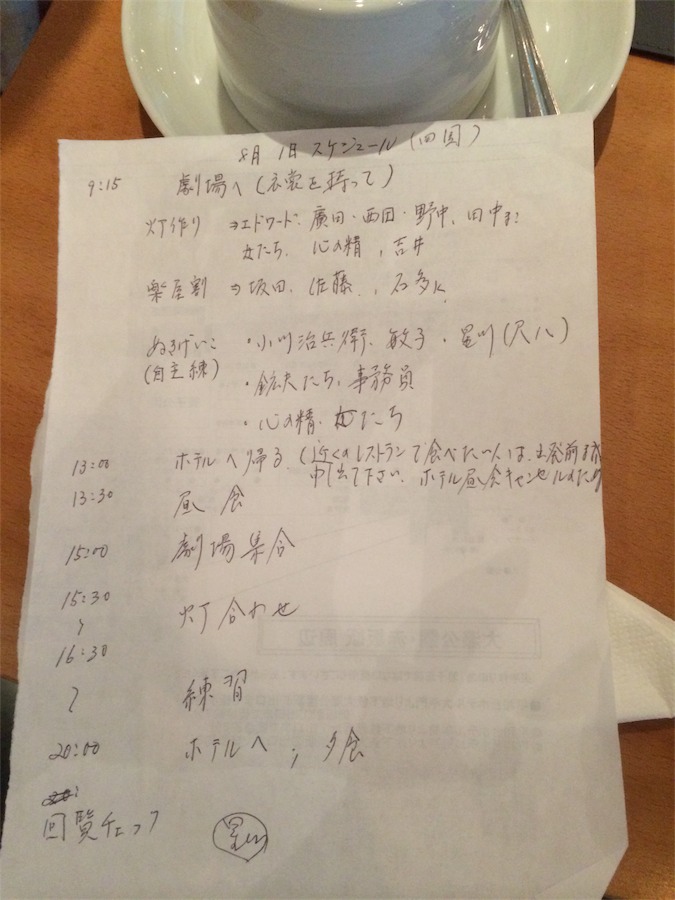 8月1日 スケジュール(回覧)
9:15 劇場へ(衣裳を持って)
灯作り ⇒エドワード、廣田・西田・野中、田中
女たち、心の精、吉井
楽屋割 ⇒坂田、佐藤、石多
ぬきげいこ ・小川治兵衛、敏子・星川(尺八)
(自主練) ・鉱夫たち、事務員
・心の精、女たち
13:00 ホテルへ帰る(近くのレストランで食べたい人は、出発前まで
申し出て下さい。ホテル昼食キャンセルのため
13:30 昼食
15:00 劇場集合
15:30 灯合わせ
〜
16:30
〜 練習
20:00 ホテルへ ; 夕食
回覧チェック 星川